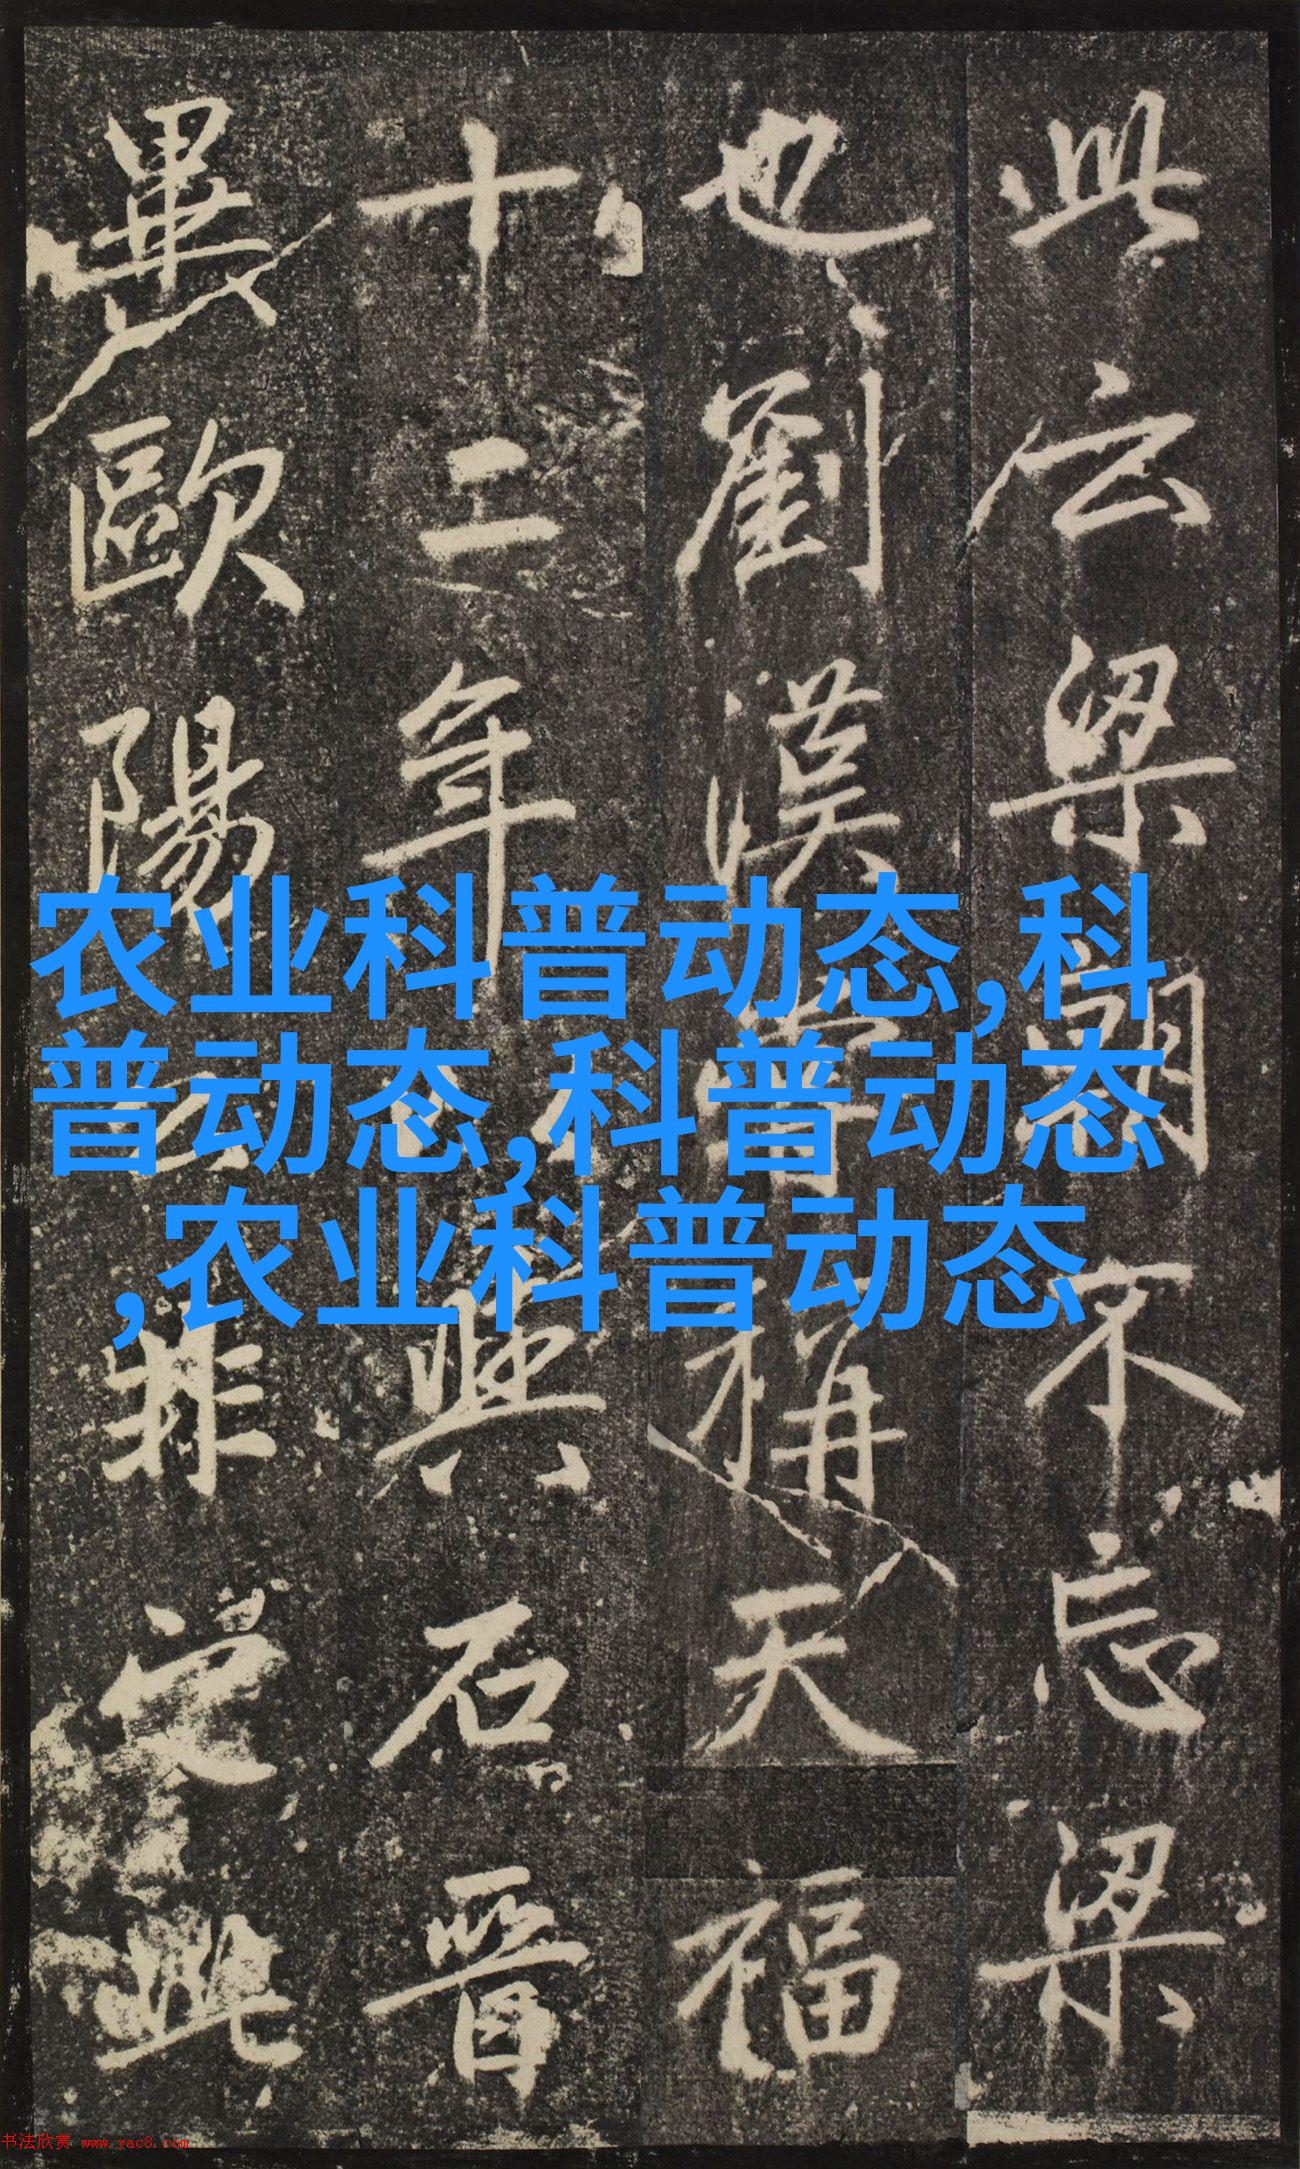 此云梁朝不忘梁
也劉漢嘗稱天福
十二年與石晉
畢歐陽公非此
农业科普动态,科
普动态,科普动态
,农业科普动态
书法欣赏 www.yac8.com